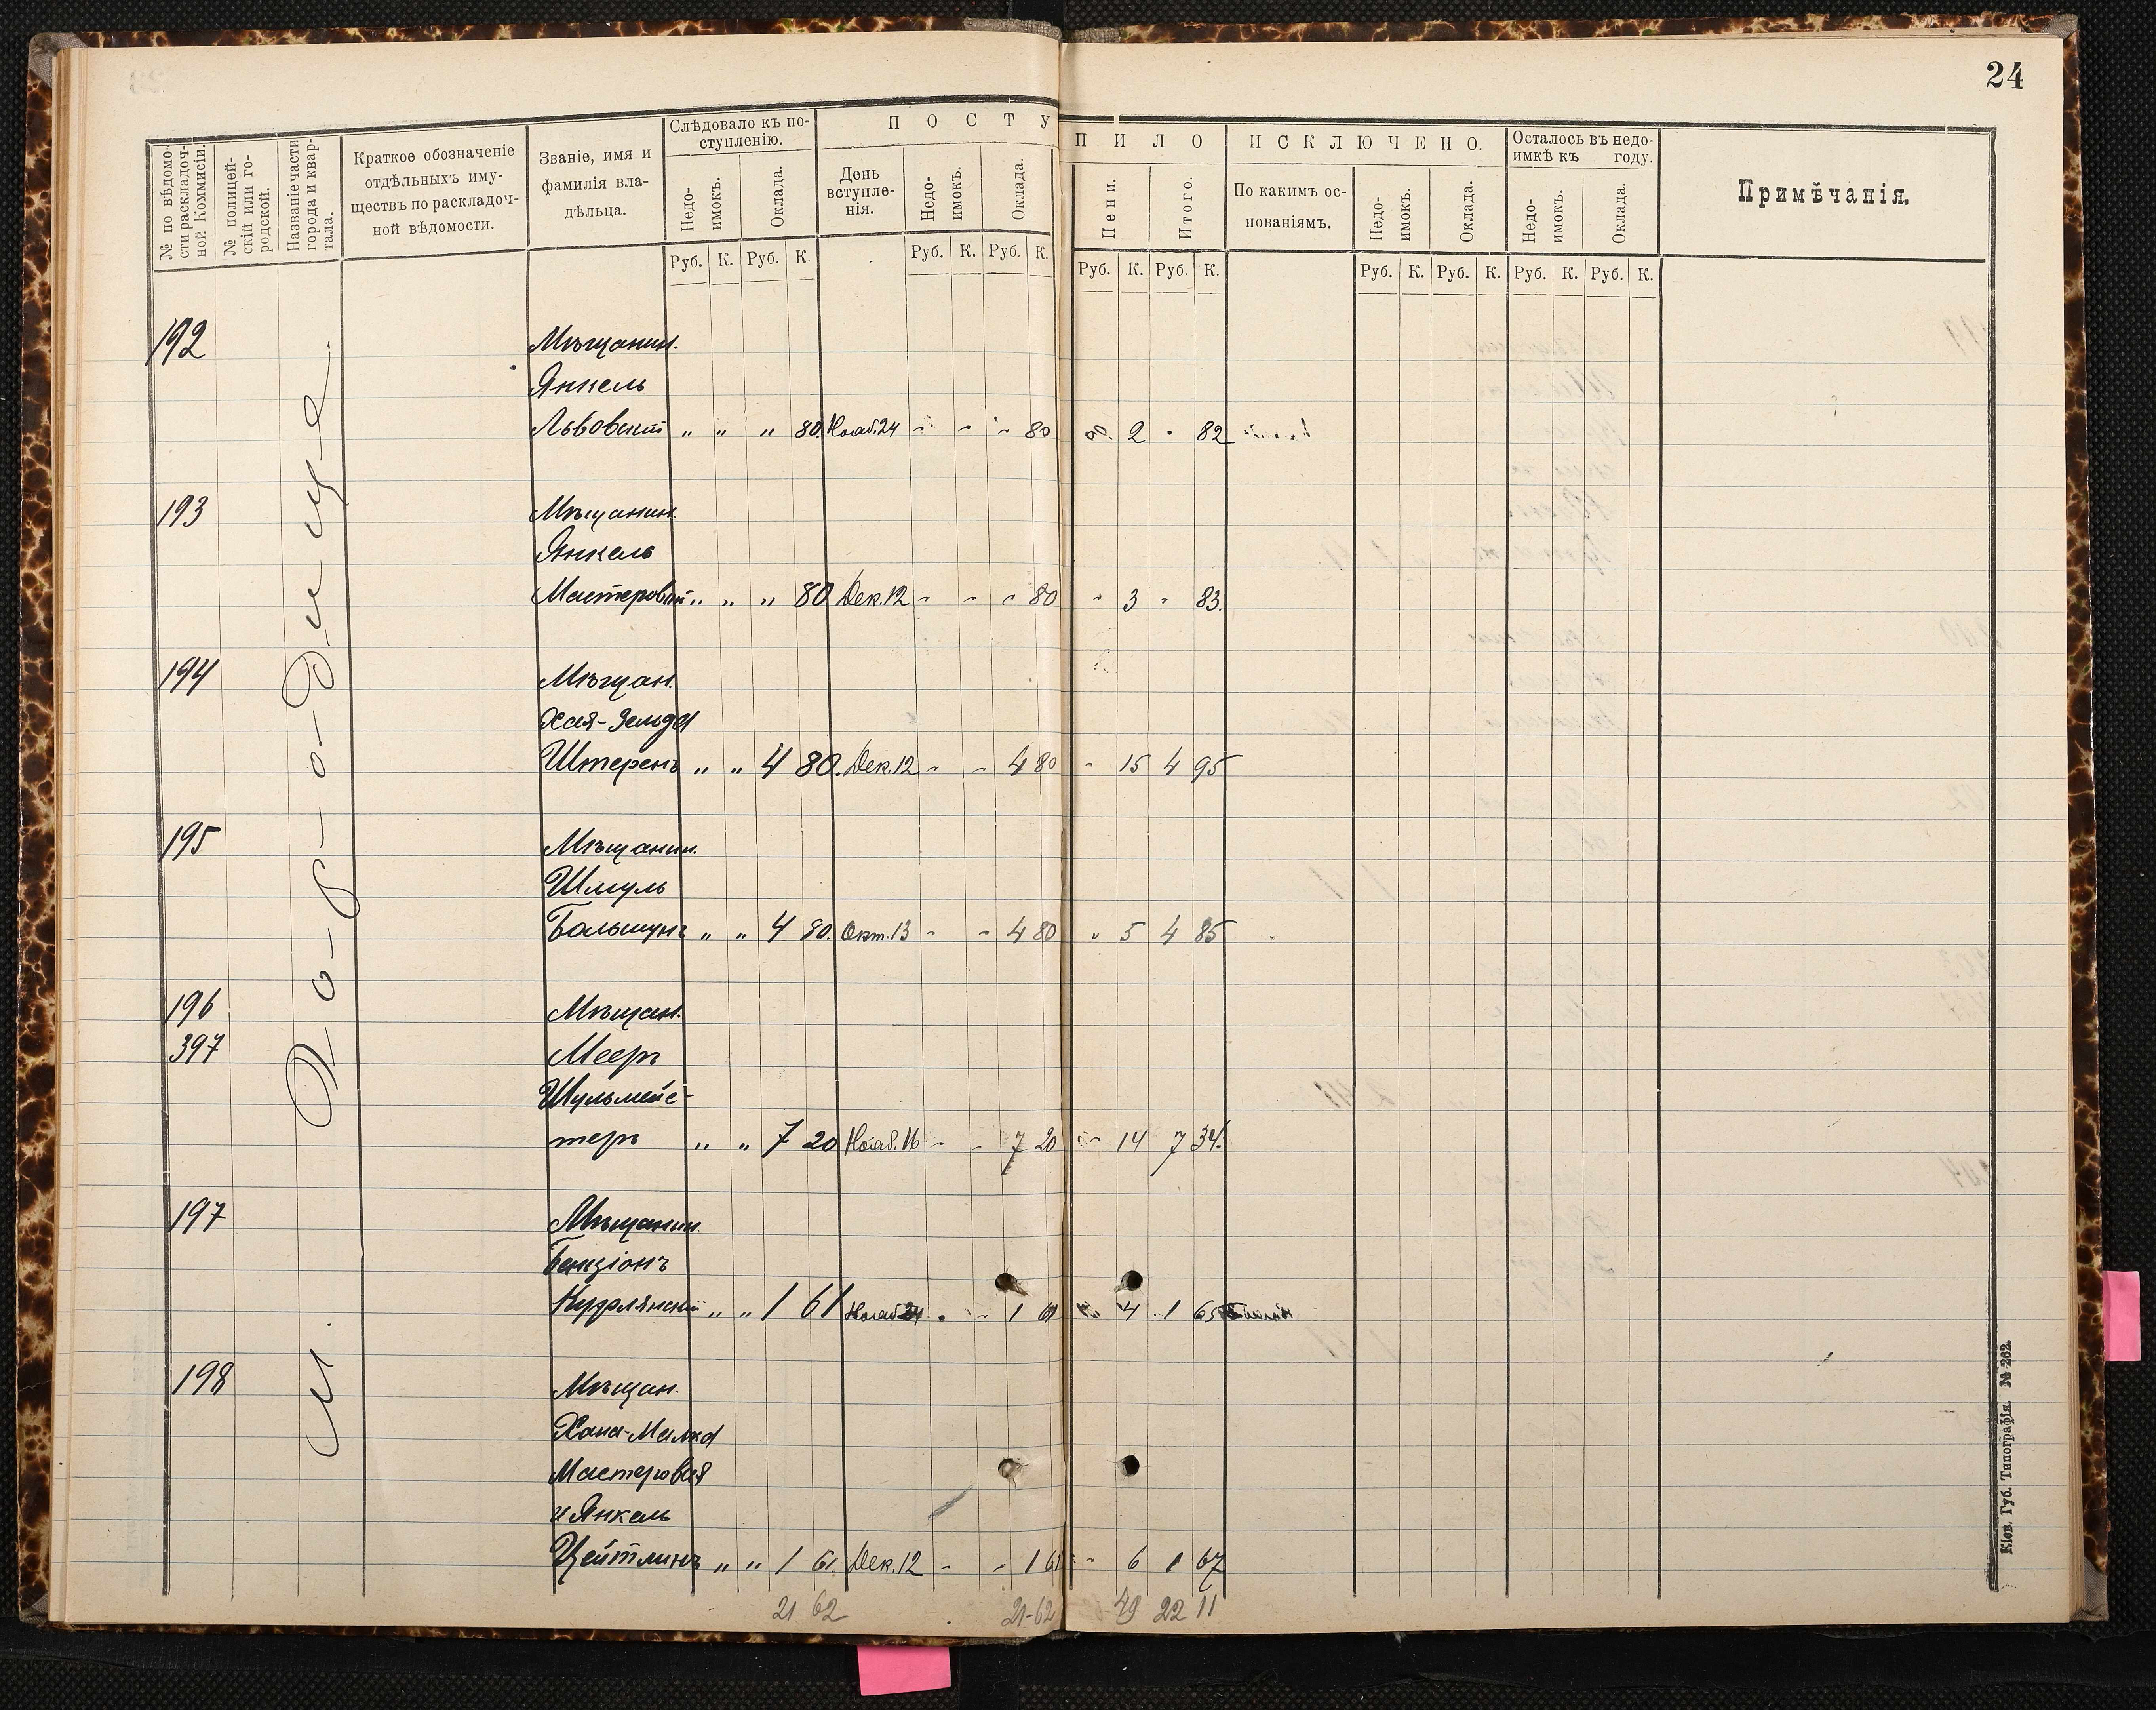 24
№ по вѣдомо-
сти раскладоч-
ной Коммисіи.
№ полицей-
скій или го-
родской.
Названіе части
города и квар-
тала.
Краткое обозначеніе
отдѣльныхъ иму-
ществъ по расклад­оч-
ной вѣдомости.
Званіе, имя и
фамилія вла-
дѣльца.
Слѣдовало къ по-
ступленію.
Недо-
имокъ.
Оклада.
ПОСТУ
День
вступле-
нія.
Недо-
имокъ.
Оклада.
ПИЛО
Пени.
Итого.
ИСКЛЮЧЕНО.
По какимъ ос-
нованіямъ.
Недо-
имокъ.
Оклада.
Осталось въ недо-
имкѣ къ году.
Недо-
имокъ.
Оклада.
Примѣчанія.
Руб. К. Руб. К. Руб. К. Руб. К. Руб. К. Руб. К. Руб. К. Руб. К. Руб. К. Руб. К.
м. Городище
192 Мѣщанин.
Янкель
Львовскій „ „ „ 80. Нояб. 24 - - - 80 2 - 82
193 Мѣщанин.
Янкель
Мастеровый „ „ „ 80 Дек. 12 - - - 80 - 3 - 83.
194 Мѣщан.
Хая-Зельда
Штеренъ „ „ 4 80. Дек. 12 - - 4 80 - 15 4 95
195 Мѣщанин.
Шмуль
Большунъ „ „ 4 80. Окт. 13 - - 4 80 „ 5 4 85
196 Мѣщан.
397 Мееръ
Шульмейс-
теръ „ „ 7 20 Нояб. 16 - - 7 20 - 14 7 34.
197 Мѣщанин.
Бенціонъ
Кудлянскій „ „ 1 61 Нояб 24 - - 1 61 4 1 65
198 Мѣщан.
Хана-Малка
Мастеровая
и Янкель
Цейтлинъ „ „ 1 61. Дек. 12 - - 1 61 - 6 1 67
21 62 21-62 49 22 11
Кіев. Губ. Типографія. № 262.